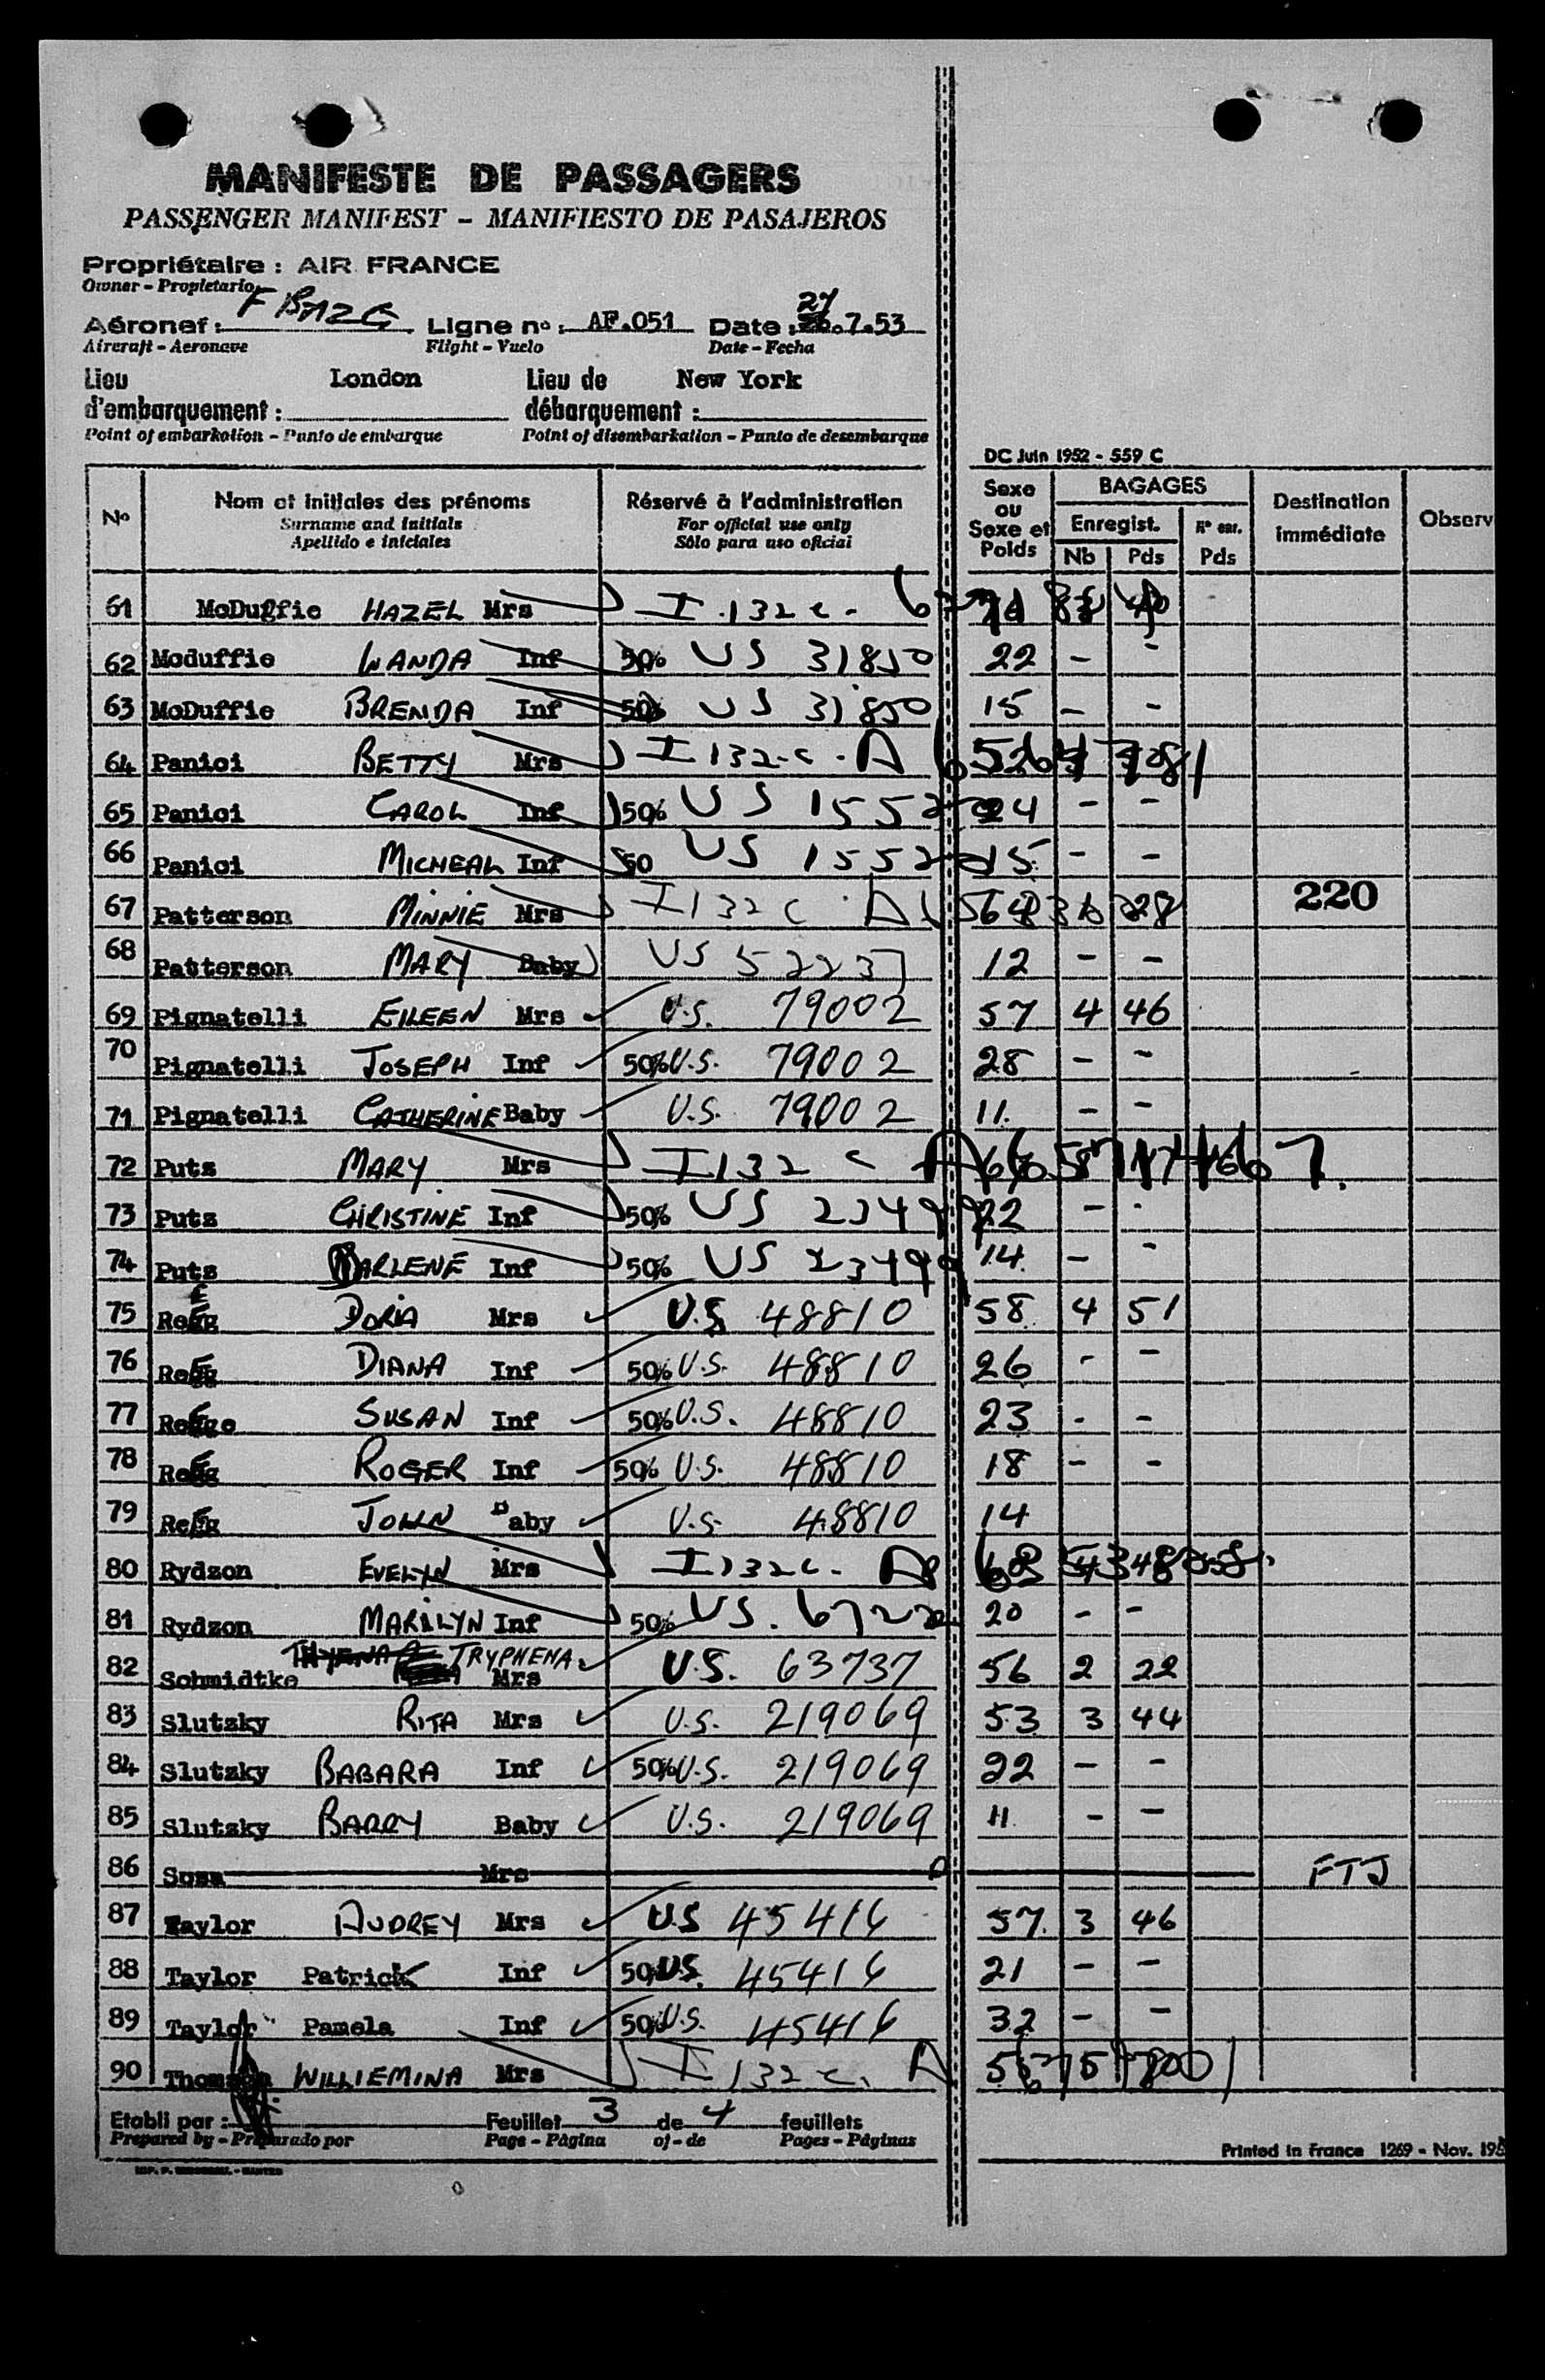 MANIFESTE DE PASSAGERS
PASSENGER MANIFEST - MANIFIESTO DE PASAJEROS
Propriétaire : AIR FRANCE
Owner - Propietario
Aéronef : F BAZG Ligne no : AF.051 Date : 27.7.53
Aircraft - Aeronave Flight - Vuelo Date - Fecha
Lieu London Lieu de New York
d'embarquement : débarquement :
Point of embarkation - Punto de embarque Point of disembarkation - Punto de desembarque
DC Juin 1952 - 559 C
No Nom et initiales des prénoms Réservé à l'administration Sexe ou Sexe et Poids BAGAGES Destination immédiate Observ
Surname and initials For official use only Enregist. Nb Pds Pds
Apellido e iniciales Sólo para uso oficial
61 McDuffie HAZEL Mrs I.132c.
62 Mcduffie WANDA Inf 50% US 31850 22 - -
63 McDuffie BRENDA Inf 50% US 31850 15 - -
64 Panici BETTY Mrs I132-c.A
65 Panici CAROL Inf 50% US 1552 24 - -
66 Panici MICHEAL Inf 50 US 1552 15 - -
67 Patterson MINNIE Mrs I132c 220
68 Patterson MARY Baby US 52237 12 - -
69 Pignatelli EILEEN Mrs U.S. 79002 57 4 46
70 Pignatelli JOSEPH Inf 50% U.S. 79002 28 - -
71 Pignatelli CATHERINE Baby U.S. 79002 11. - -
72 Putz MARY Mrs I132 c A
73 Putz CHRISTINE Inf 50% US 23499 22 - -
74 Putz DARLENE Inf 50% US 23499 14. - -
75 DORIA Mrs U.S 48810 58 4 51
76 DIANA Inf 50% U.S. 48810 26 - -
77 SUSAN Inf 50% U.S. 48810 23 - -
78 ROGER Inf 50% U.S. 48810 18 - -
79 JOHN Baby U.S. 48810 14
80 Rydzon EVELYN Mrs I132c.
81 Rydzon MARILYN Inf 50% US. 20 - -
82 Schmidtke TRYPHENA Mrs U.S. 63737 56 2 22
83 Slutzky RITA Mrs U.S. 219069 53 3 44
84 Slutzky BABARA Inf 50% U.S. 219069 22 - -
85 Slutzky BARRY Baby U.S. 219069 11. - -
86 Mrs FTJ
87 Taylor AUDREY Mrs U.S 45416 57. 3 46
88 Taylor Patrick Inf 50% U.S. 45416 21 - -
89 Taylor Pamela Inf 50% U.S. 45416 32 - -
90 WILLIEMINA Mrs I 132 c. A
Etabli par : Feuillet 3 de 4 feuillets
Prepared by - Preparado por Page - Página of - de Pages - Páginas
Printed in France 1269 - Nov.